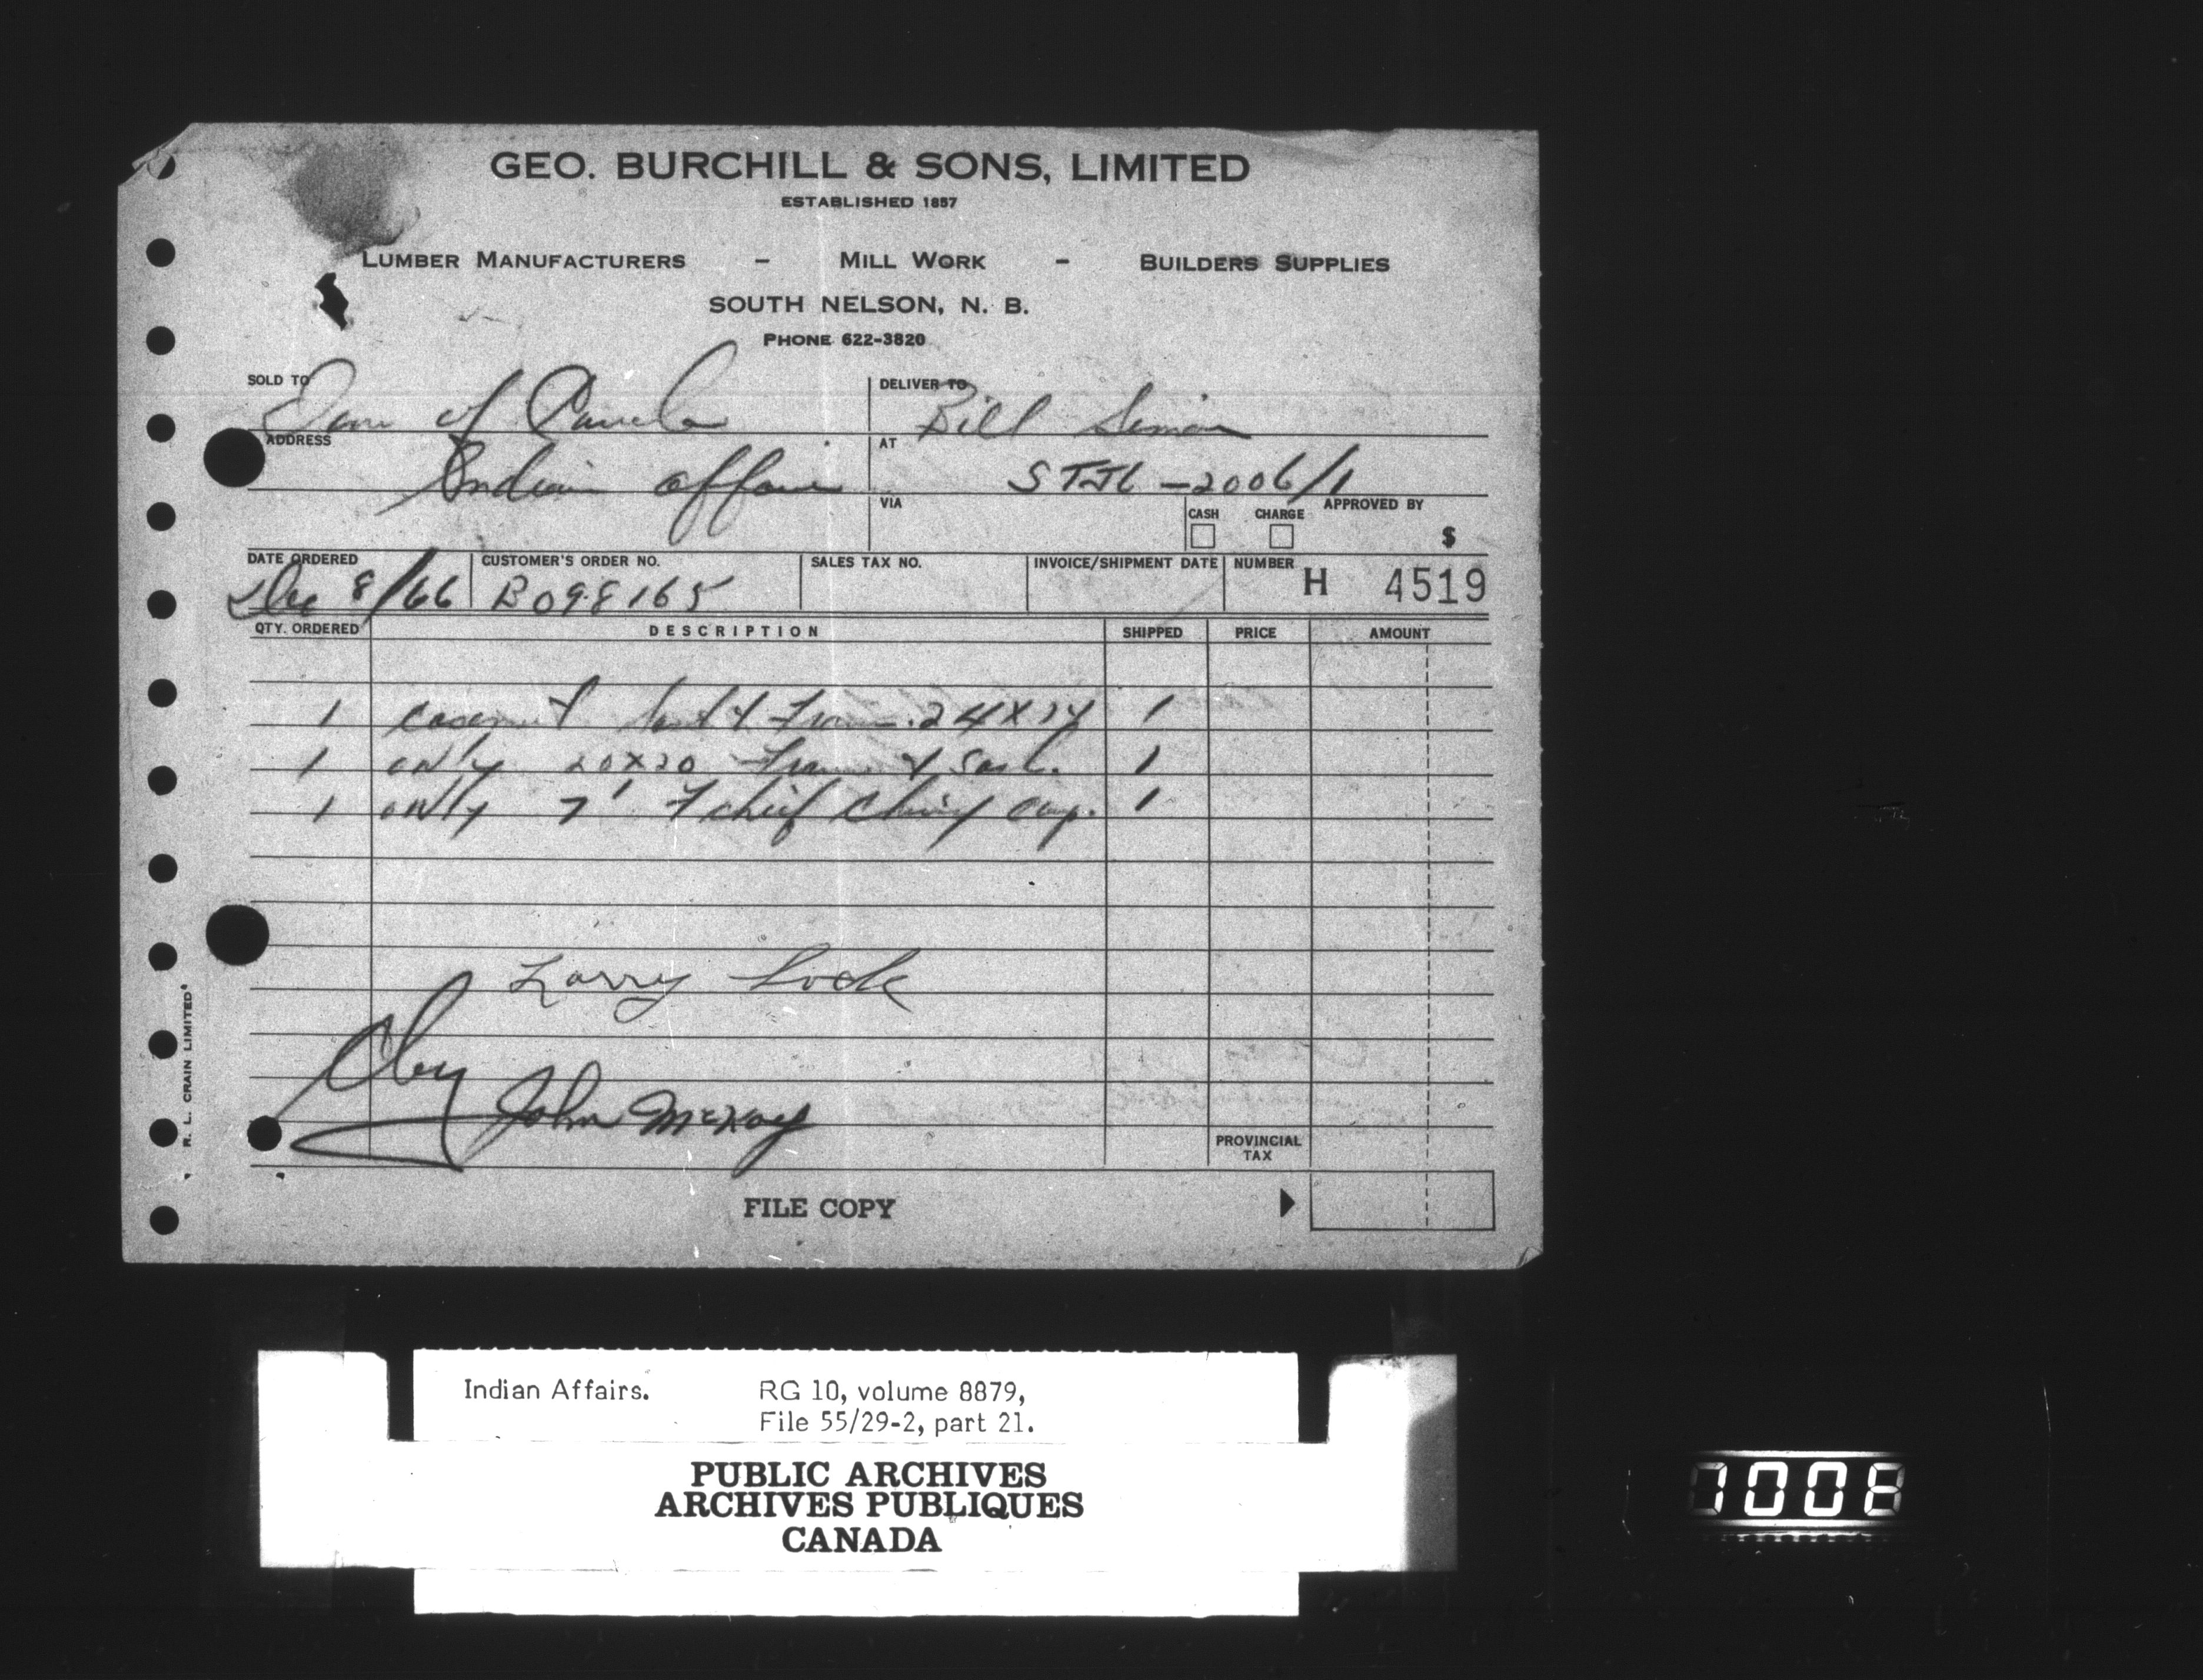 GEO. BURCHILL & SONS, LIMITED
ESTABLISHED 1857
LUMBER MANUFACTURERS - MILL WORK - BUILDERS SUPPLIES
SOUTH NELSON, N. B.
PHONE 622-3820
SOLD TO of
DELIVER TO Bill Simon
ADDRESS Indian affairs
AT 2006/1
VIA
CASH CHARGE APPROVED BY
$
DATE ORDERED Dec 8/66
CUSTOMER'S ORDER NO. B098165
SALES TAX NO.
INVOICE/SHIPMENT DATE
NUMBER H 4519
QTY. ORDERED DESCRIPTION SHIPPED PRICE AMOUNT
1 24X24 1
1 only 20X20 Frame & Sash. 1
1 only 7' 1
Larry Lock
John McKay
PROVINCIAL TAX
FILE COPY
R. L. CRAIN LIMITED
Indian Affairs. RG 10, volume 8879,
File 55/29-2, part 21.
PUBLIC ARCHIVES
ARCHIVES PUBLIQUES
CANADA
7008